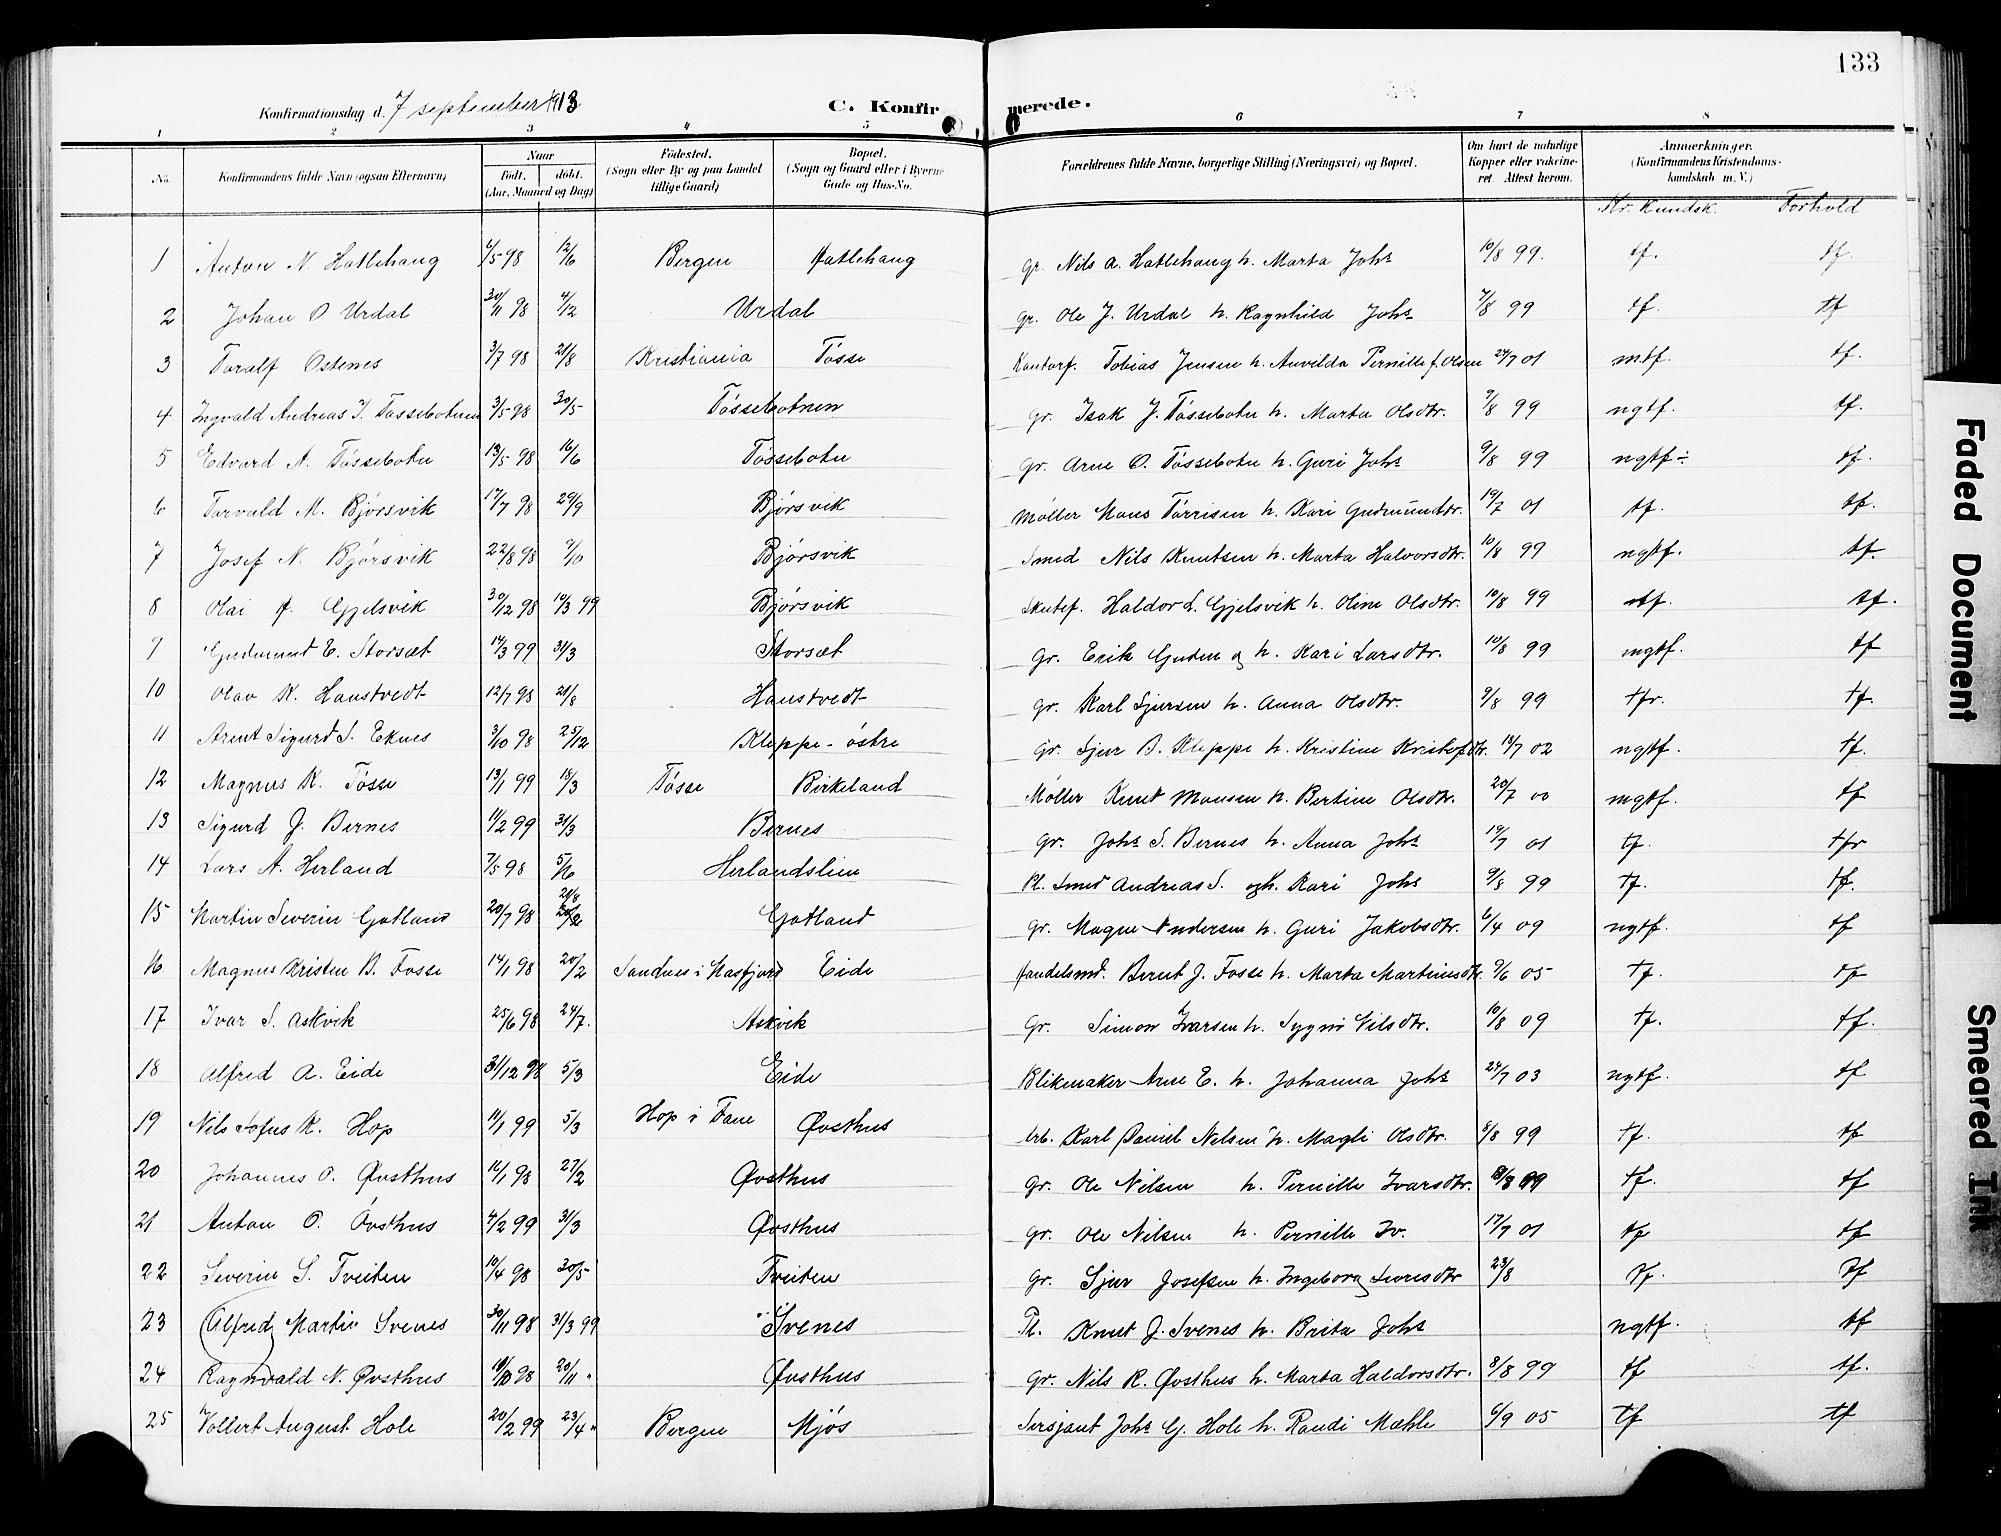 133
Konfirmationsdag d. 7 september 1913
C. Konfirmerede.
1 2 3 4 5 6 7 8
No. Konfirmandens fulde Navn (ogsaa Efternavn) Naar Født. døbt. (Aar, Maaned og Dag) Fødested. (Sogn eller By og paa Landet tillige Gaard) Bopæl. (Sogn og Gaard eller i Byerne Gade og Hus-No. Forældrenes fulde Navne, borgerlige Stilling (Næringsvei) og Bopæl. Om havt de naturlige Kopper eller vakcineret. Attest herom. Anmærkninger. (Konfirmandens Kristendomskundskab m. V.)
Kr. Kundsk. Forhold
1 Anton N. Hatlehaug 6/5 98 12/6 Bergen Hatlehaug Gr. Nils A. Hatlehaug h. Marta Johs 10/8 99. tf. tf.
2 Johan O Urdal 30/11 98 4/12 Urdal Gr. Ole J. Urdal h. Ragnhild Johs 7/8 99 tf. tf
3 Toralf Ostenes 3/7 98 21/8 Kristiania Tösse Kontorf. Tobias Jensen h. Anvilda Pernille f. Olsen 24/7 01 mtf. tf.
4 Ingvald Andreas I. Tössebotnen 3/5 98 30/5 Tössebotnen Gr. Isak J. Tössebotn h. Marta Olsdtr. 9/8 99 ngtf. tf.
5 Edvard A. Tössebotn 13/5 98 16/6 Tössebotn Gr. Arne O. Tössebotn h. Guri Johs 9/8 99 ngtf÷ tf.
6 Torvald M. Bjørsvik 17/7 98 29/9 Bjørsvik Møller Mons Torrisen h. Kari Gudmundtr. 19/7 01 tf. tf.
7 Josef N. Bjørsvik 22/8 98 9/10 Bjørsvik Smed Nils Knutsen h. Marta Halvorsdtr. 10/8 99 ngtf. tf.
8 Olai H. Gjelsvik 30/12 98 19/3 99 Bjørsvik Skutef. Haldor L. Gjelsvik h. Oline Olsdtr. 10/8 99 tf. tf.
9 Gudmund E. Storsæt 14/3 99 31/3 Storsæt Gr. Erik Gudm og h. Kari Larsdtr. 10/8 99 mgtf. tf
10 Olav K. Haustvedt 12/7 98 21/8 Haustvedt Gr. Karl Sjursen h. Anna Olsdtr. 9/8 99 tfr. tf.
11 Arent Sigurd S. Eknes 3/10 98 25/12 Kleppe - östre Gr. Sjur B. Kleppe h. Kristine Kristofdtr. 18/7 02 ngtf. tf.
12 Magnus K. Tösse 13/1 99 18/3 Tösse Birkeland Møller Knut Monsen h. Bertine Olsdtr. 20/7 00 mgtf. tf
13 Sigurd J. Bernes 11/2 99 31/3 Bernes Gr. Johs S. Bernes h. Anna Johs 19/7 01 tf. tfr
14 Lars A. Herland 7/5 98 5/6 Herlandslien Pl. Smed Andreas S. og h. Kari Johs 9/8 99 tf. tf.
15 Martin Severin Gotland 20/7 98 21/8 Gotland Gr. Mogne Andersen h. Guri Jakobsdtr. 6/4 09 ngtf. tf
16 Magnus Kristen B. Fosse 14/1 98 20/2 Sandnes i Masfjord Eide Handelsmd. Bernt J. Fosse h. Marta Martinusdtr. 9/6 05 tf. tf
17 Ivar S. Askvik 25/6 98 24/7. Askvik Gr. Simon Ivarsen h. Sygni Nilsdtr. 10/8 09 tf. tf.
18 Alfred A. Eide 31/12 98 5/3 Eide Blikmaker Arne E. h. Johanna Johs 24/7 03 ngtf. tf
19 Nils Sofus K. Hop 11/1 99 5/3 Hop i Fane Øvsthus Arb. Karl Daniel Nilsen h. Magli Olsdtr. 8/8 99 tf. tf
20 Johannes O. Øvsthus 16/1 98 27/2 Øvsthus Gr. Ole Nilsen h. Pernille Ivarsdtr. 8/8 99 tf. tf
21 Anton O. Óvsthus 4/2 99 31/3 Øvsthus Gr. Ole Nilsen h. Pernille Iv. 17/7 01 tf tf
22 Severin S. Tveiten 10/4 98 30/5 Tveiten Gr. Sjur Josefsen h. Ingeborg Iversdtr 23/8 tf. tf
23 Alfred Martin Ivenes 30/11 98 31/3 99 Ivenes Pl. Knut J. Ivenes h. Brita Johs ngtf. tf
24 Ragnvald N. Øvsthus 10/10 98 20/11 " Øvsthus Gr. Nils R. Øvsthus h. Marta Haldorsdtr. 8/8 99 tf tf.
25 Vollert August Hole 20/2 99 23/4 " Bergen Mjós Sersjant Johs G. Hole h. Randi Mæhle 6/9 05 tf tf
Faded Document
Smeared Ink